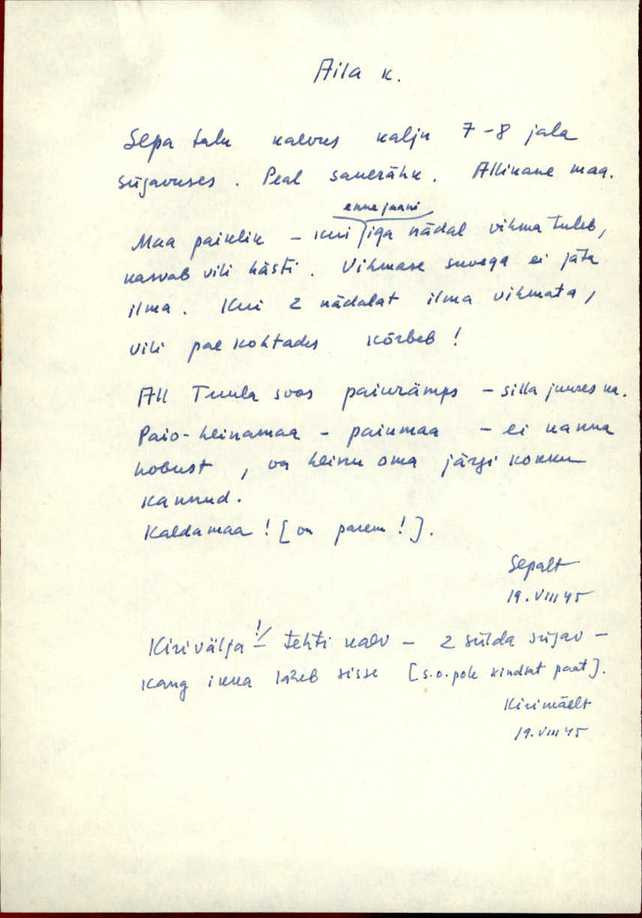 Aila k.
Sepa talu kaevus kalju 7-8 jala
sügavuses. Peal sauerähk. Allikane maa.
enne jaani
Maa paiklik – kui iga nädal vihma tuleb,
kasvab vili hästi. Vihmase suvega ei jäta
ilma. Kui 2 nädalat ilma vihmata,
vili paekohtades kõrbeb!
All Tuula soos paiurämps – silla juures ka.
Paio-heinamaa – paiumaa – ei kanna
hobust, on heinu oma järgi kokku
kannud.
Kaldamaa! [on parem!].
Sepalt
19. VIII 45
Kirivälja! – tehti kaev – 2 sülda sügav –
kang ikka läheb sisse [s.o. pole kindlat paat].
Kirimäelt
19. VIII 45